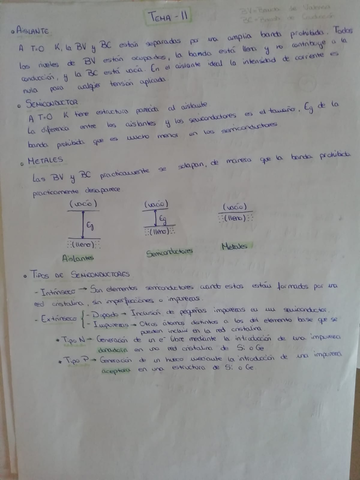 TEMA-11
• AISLANTE
A T=0 K, la BV y BC están separadas por una amplia banda prohibida. Todos
los niveles de BV están ocupados, la banda está llena y no contribuye a la
conducción, y la BC está vacía. En el aislante ideal la intensidad de corriente es
nula para cualquier tensión aplicada.
• SEMICONDUCTOR
A T=0 K tiene estructura parecida al aislante
La diferencia entre los aislantes y los semiconductores es el tamaño, Eg de la
banda prohibida que es mucho menor en los semiconductores
• METALES
Las BV y BC prácticamente se solapan, de manera que la banda prohibida
prácticamente desaparece
(vacío) (vacío) (vacío)
Eg Eg
(lleno) (lleno) (lleno)
Aislantes Semiconductores Metales
• TIPOS DE SEMICONDUCTORES
- Intrínseco → Son elementos semiconductores cuando estos están formados por una
red cristalina, sin imperfecciones o impurezas
- Extrínseco - Dopado → Inclusión de pequeñas impurezas en un semiconductor
- Impurezas → Otros átomos distintos a los del elemento base que se
pueden incluir en la red cristalina
• Tipo N → Generación de un e⁻ libre mediante la introducción de una impureza
donadora en una red cristalina de Si o Ge
• Tipo P → Generación de un hueco mediante la introducción de una impureza
aceptora en una estructura de Si o Ge